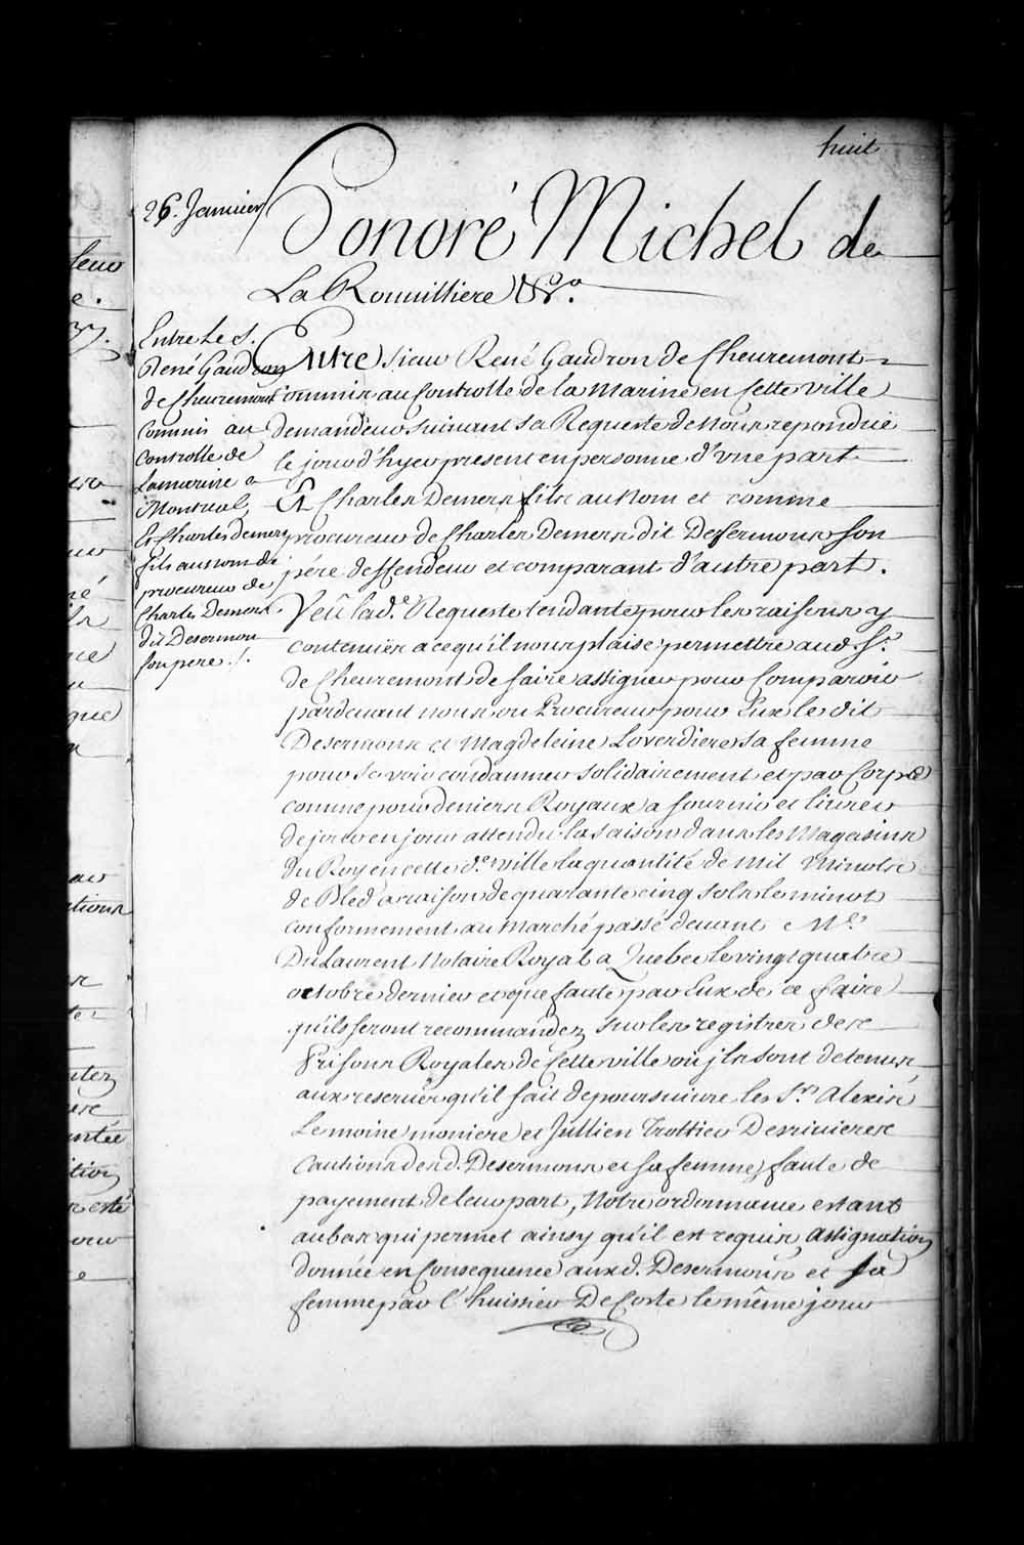 huit
26. Janvier
Honoré Michel de
La Rouvilliere &c.a
Entre Le S.
René Gaudron
de Cheuremont
Commis au
Controlle de
La marine a
Montreal,
Et Charles demers
fils au nom de
procureur de
Charles Demers
dit Desermon
son pere ./.
Entre sieur René Gaudron de Cheuremont
Commis au Controlle de la Marine en Cette ville
demandeur suivant sa Requeste de Nous repondüe
le jour d'hyer present en personne d'vne part
Et Charles Demers fils au Nom et comme
procureur de Charles Demers dit Dessermons son
pére deffendeur et comparant d'autre part.
Veü lad.e Requeste tendante pour les raisons y
contenües a ce qu'il nous plaise permettre aud. S.r
de Cheuremont de faire assigner pour Comparoir
pardevant nous ou Procureur pour Eux le dit
Desermons et Magdeleine Loverdiere sa femme
pour se voir condamner solidairement et par Corps
comme pour deniers Royaux a fournir et livrer
de jour en jour attendu la saison dans les Magasins
du Roy en cette d.e ville la quantité de Mil Minots
de Bled a raison de quarante cinq sols le minot
conformement au Marché passé devant M.e
DuLaurent Notaire Royal a Quebec le vingt quatre
octobre dernier et que faute par Eux de ce faire
qu'ils seront recommandez sur les registres des
Prisons Royales de Cette ville ou jls sont detenus,
aux reserves qu'il fait de poursuivre les S.rs Alexis
Lemoine moniere et Jullien Trottier Desrivieres
Cautions desd. Desermons et sa femme, faute de
payement de leur part, Notre ordonnance estant
au bas qui permet ainsy qu'il est requis, assignation
donnée en Consequence auxd. Desermons et sa
femme par l'huissier DeCoste le même jour